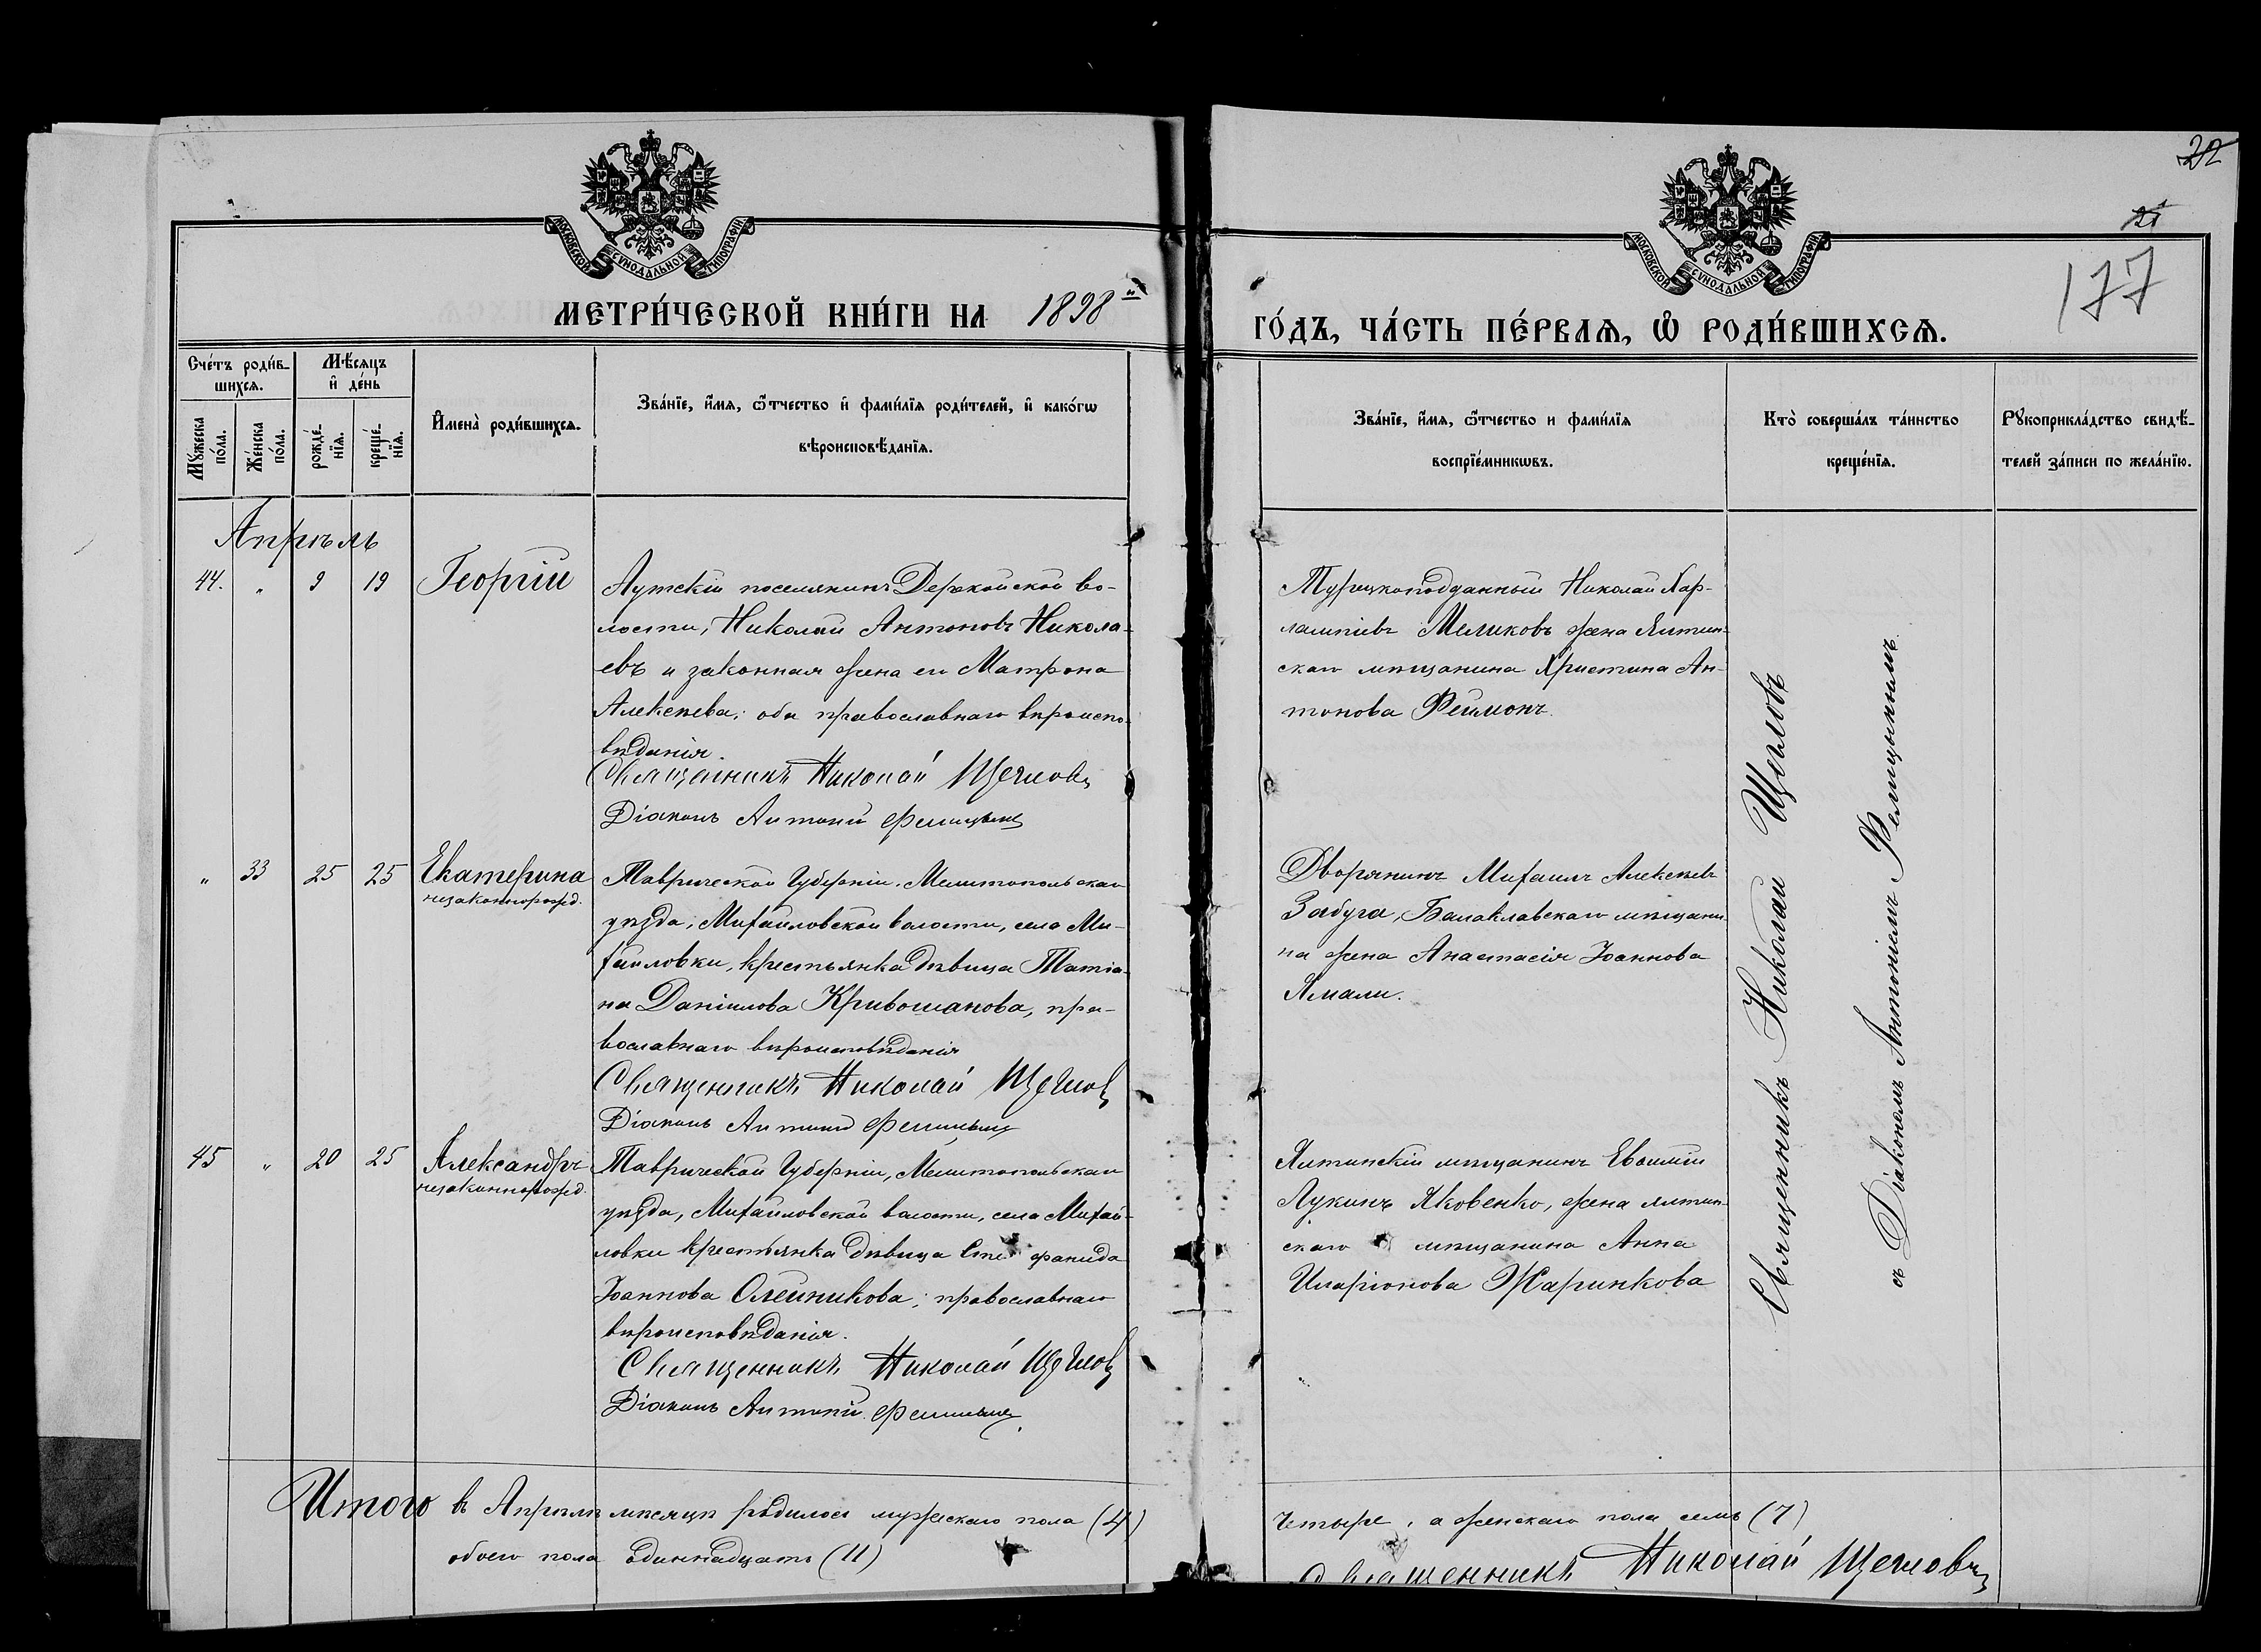 22
21
177
МОСКОВСКОЙ СУНОДАЛЬНОЙ ТИПОГРАФІИ
МОСКОВСКОЙ СУНОДАЛЬНОЙ ТИПОГРАФІИ
МЕТРИ́ЧЕСКОЙ КНИ́ГИ НА 1898й
ГО́ДЪ, ЧА́СТЬ ПЕ́РВАѦ, Ѿ РОДИ́ВШИХСѦ.
Сче́тъ роди́в-
шихсѧ.
Мѣ́сѧцъ
и де́нь
Мꙋ́жеска по́ла.
Же́нска по́ла.
рожде́-
нїѧ.
креще́-
нїѧ.
Имена̀ роди́вшихсѧ.
Зва́нїе, и́мѧ, ѻ́тчество и фами́лїѧ роди́телей, и како́гѡ
вѣроисповѣ́данїѧ.
Зва́нїе, и́мѧ, ѻ́тчество и фами́лїѧ
воспрїе́мникѡвъ.
Кто̀ соверша́лъ та́инство
креще́нїѧ.
Рꙋкоприкла́дство свидѣ́-
телей за́писи по жела́нїю.
Апрѣль
44. " 9 19 Георгій
Аутскій поселянинъ Дерекойской во-
лости, Николай Антоновъ Никола-
евъ и законная жена его Матрона
Алексѣева; оба православнаго вѣроиспо-
вѣданія.
Священникъ Николай Щегловъ
Діаконъ Антоній
Турецкоподданный Николай Хар-
лампіевъ Меликовъ жена Ялтин-
скаго мѣщанина Христина Ан-
тонова Феймонъ.
" 33 25 25 Екатерина
незаконнорожд.
Таврической Губерніи, Мелитопольскаго
уѣзда, Михайловской волости, села Ми-
хайловки, крестьянка дѣвица Татіа-
на Даніилова Кривошанова, пра-
вославнаго вѣроисповѣданія
Священникъ Николай Щегловъ
Діаконъ Антоній
Дворянинъ Михаилъ Алексѣевъ
Забуга, Балаклавскаго мѣщани-
на жена Анастасія Іоаннова
Ямали.
45 " 20 25 Александръ
незаконнорожд.
Таврической Губерніи, Мелитопольскаго
уѣзда, Михайловской волости, села Михай-
ловки крестьянка дѣвица Сте фанида
Іоаннова Олейникова; православнаго
вѣроисповѣданія.
Священникъ Николай Щегловъ
Діаконъ Антоній
Ялтинскій мѣщанинъ Евѳимій
Лукинъ Яковенко, жена ялтин-
скаго мѣщанина Анна
Иларіонова Жаринкова
Священникъ Николай Щегловъ
съ Діакономъ Антоніемъ
Итого въ Апрѣлѣ мѣсяцѣ родилось мужескаго пола (4)
обоего пола одиннадцать (11)
четыре, а женскаго пола семь (7)
Священникъ Николай Щегловъ